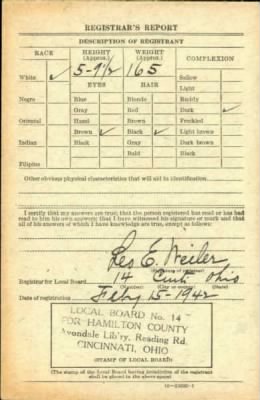 REGISTRAR'S REPORT
DESCRIPTION OF REGISTRANT
RACE HEIGHT (Approx.) WEIGHT (Approx.) COMPLEXION
White ✓ 5-9½ 165 Sallow
EYES HAIR Light
Negro Blue Blonde Ruddy
Gray Red Dark ✓
Oriental Hazel Brown Freckled
Brown ✓ Black ✓ Light brown
Indian Black Gray Dark brown
Bald Black
Filipino
Other obvious physical characteristics that will aid in identification
I certify that my answers are true; that the person registered has read or has had
read to him his own answers; that I have witnessed his signature or mark and that
all of his answers of which I have knowledge are true, except as follows:
Leo E. Weiler
(Signature of registrar)
Registrar for Local Board 14 Cinti Ohio
Date of registration Feby 15-1942
LOCAL BOARD No. 14
FOR HAMILTON COUNTY
Avondale Lib'ry, Reading Rd.
CINCINNATI, OHIO
(STAMP OF LOCAL BOARD)
(The stamp of the Local Board having jurisdiction of the registrant
shall be placed in the above space.)